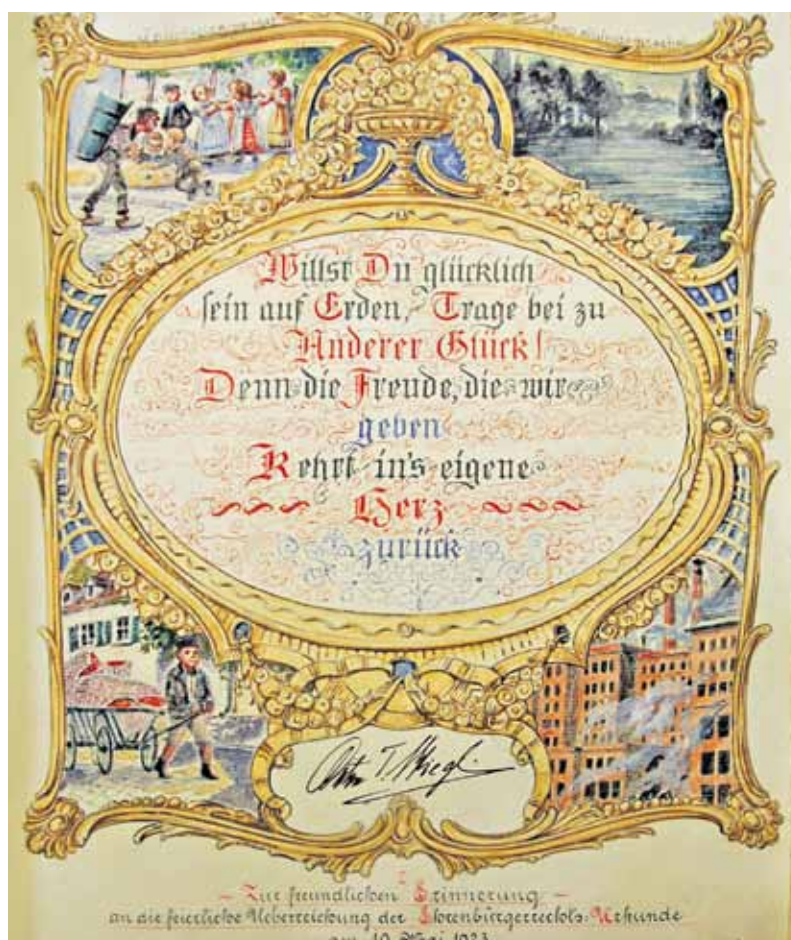 Willst Du glücklich
sein auf Erden, Trage bei zu
Anderer Glück!
Denn die Freude, die wir
geben
Kehrt in's eigene
Herz
zurück
— Zur freundlichen Erinnerung —
an die feierliche Ueberreichung der Ehrenbürgerrechts-Urkunde
am 10. Mai 1923